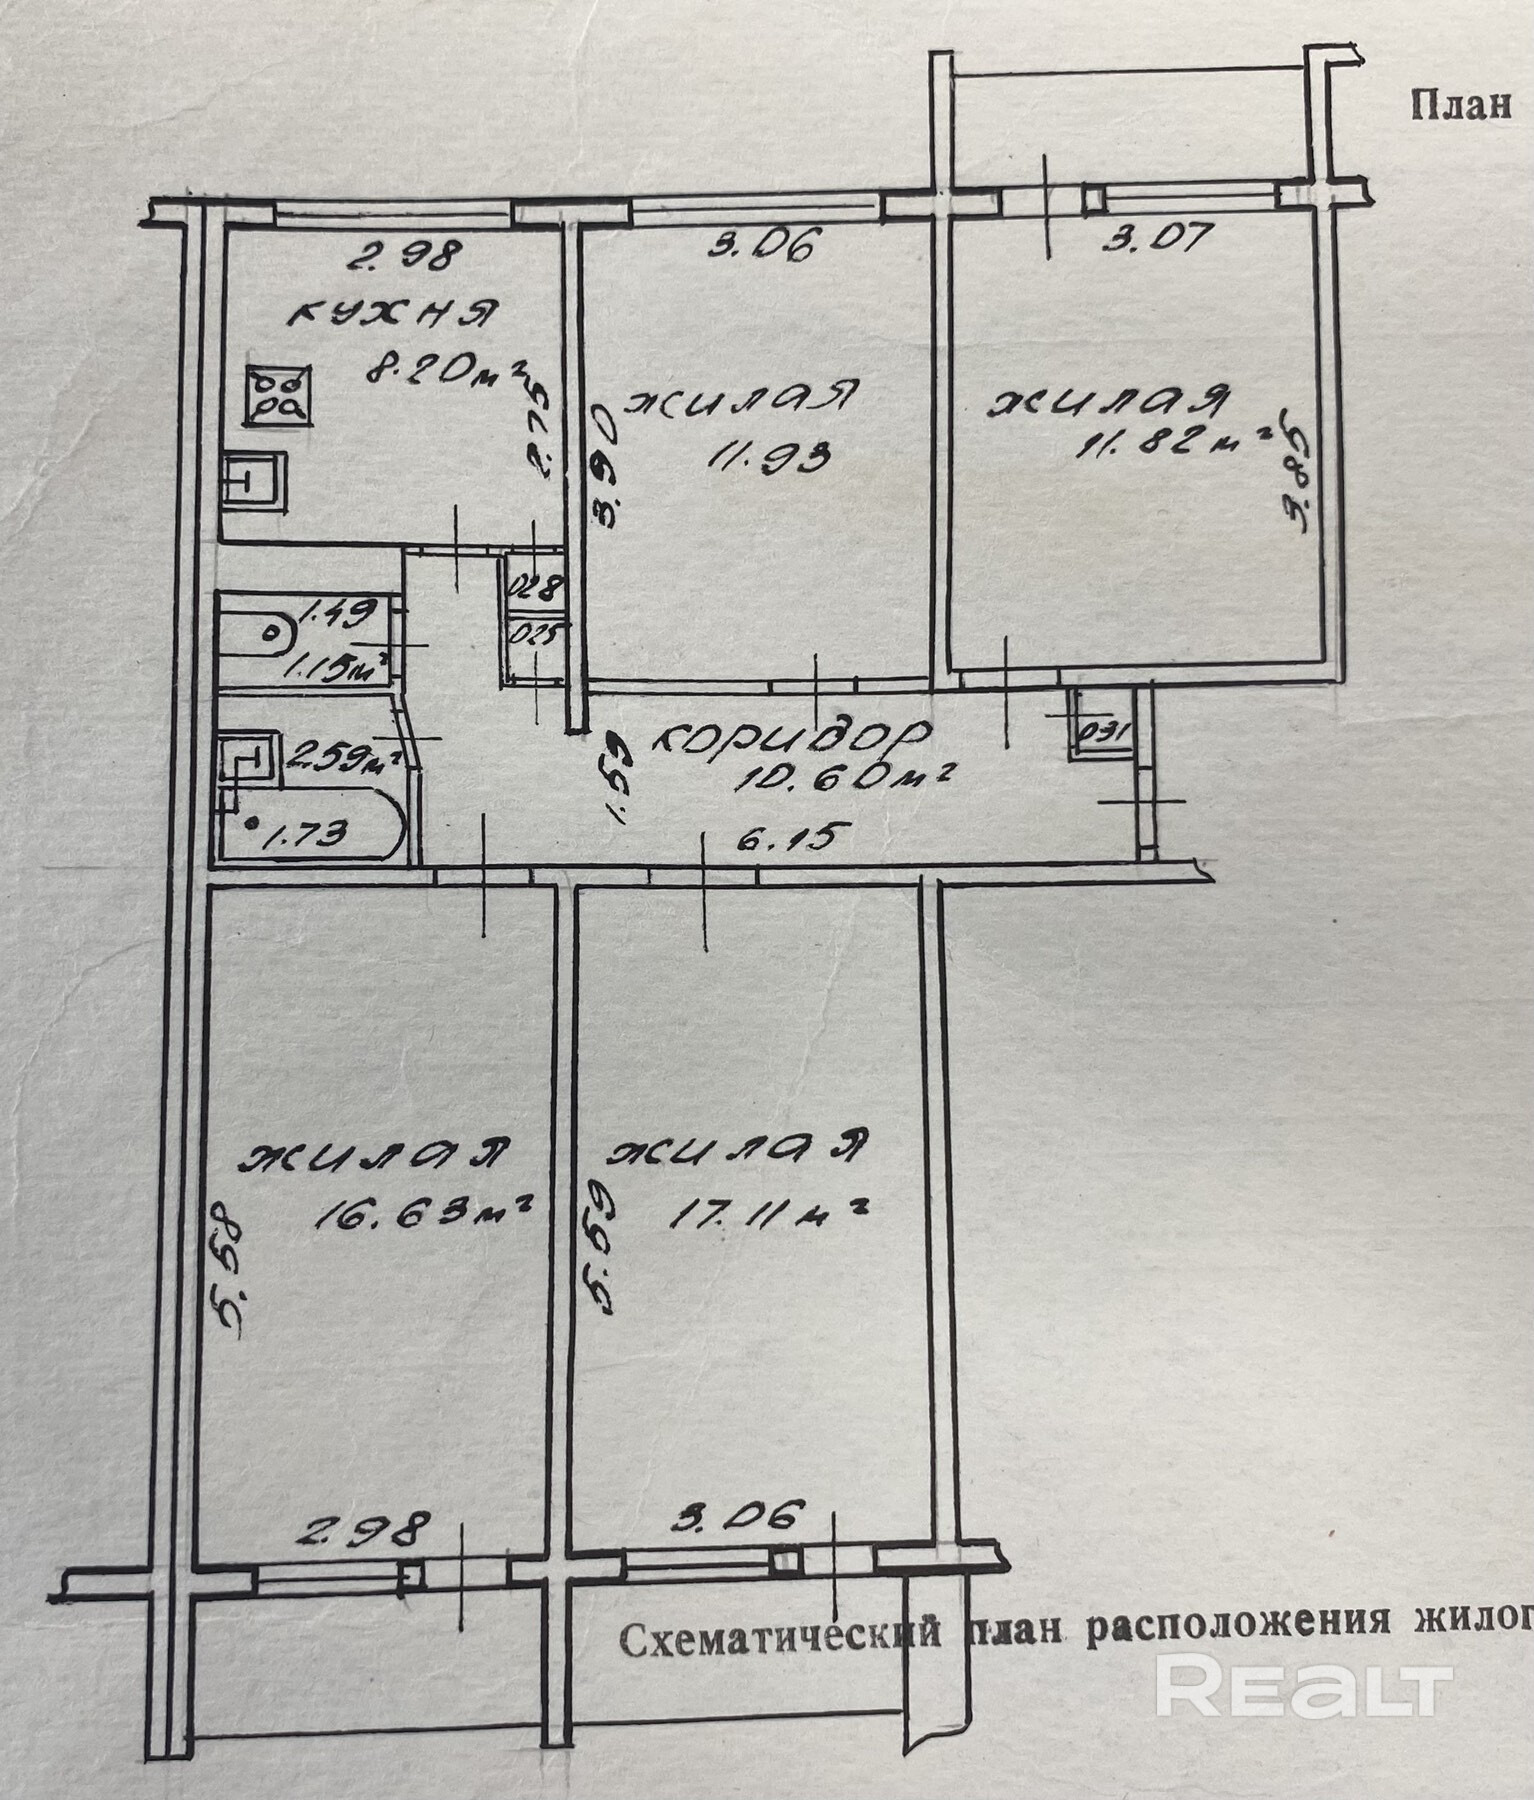 План
2.98
кухня
8.20м²
2.75
3.06
жилая
11.93
3.90
3.07
жилая
11.82м²
3.85
028
025
1.49
1.15м²
2.59м²
1.73
коридор
10.60м²
1.59
6.15
031
жилая
16.63м²
5.58
2.98
жилая
17.11м²
5.59
3.06
Схематический план расположения жилог
REALT